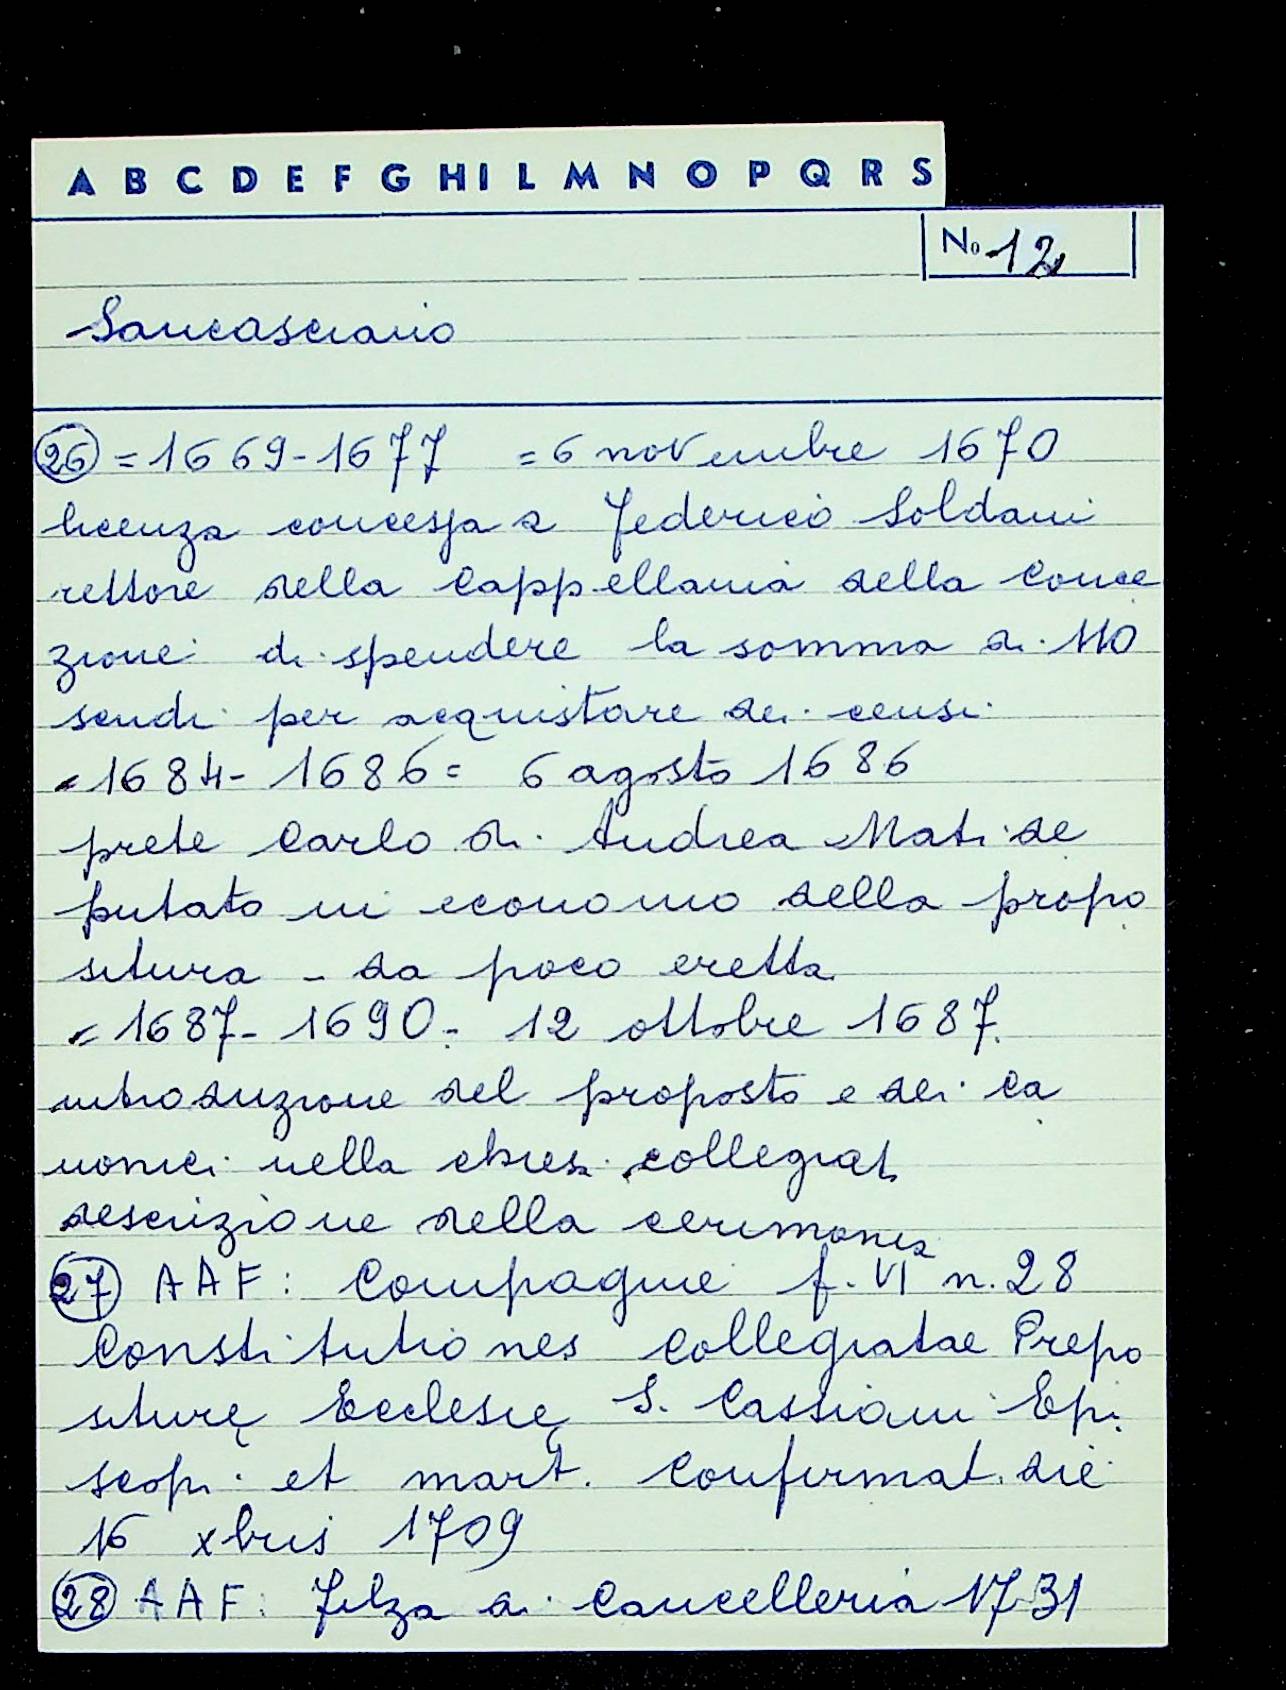 A B C D E F G H I L M N O P Q R S
No 12
Sancasciano
26 = 1669-1677 = 6 novembre 1670
licenza concessa a Federico Soldani
rettore della Cappellania della Conce
zione di spendere la somma di 110
scudi per acquistare dei censi
= 1684-1686 = 6 agosto 1686
prete Carlo di Andrea Mati de
putato in economo della propo
situra - da poco eretta
= 1687-1690 - 12 ottobre 1687.
introduzione del proposto e dei ca
nonici nella chies. collegiat.
descrizione della cerimonia
27 AAF: Compagnie f. VI n. 28
Constitutiones Collegiatae Prepo
siturę Ecclesię S. Cassiani Epi
scopi et mart. confirmat. die
16 xbris 1709
28 AAF: Filza di Cancelleria 1731